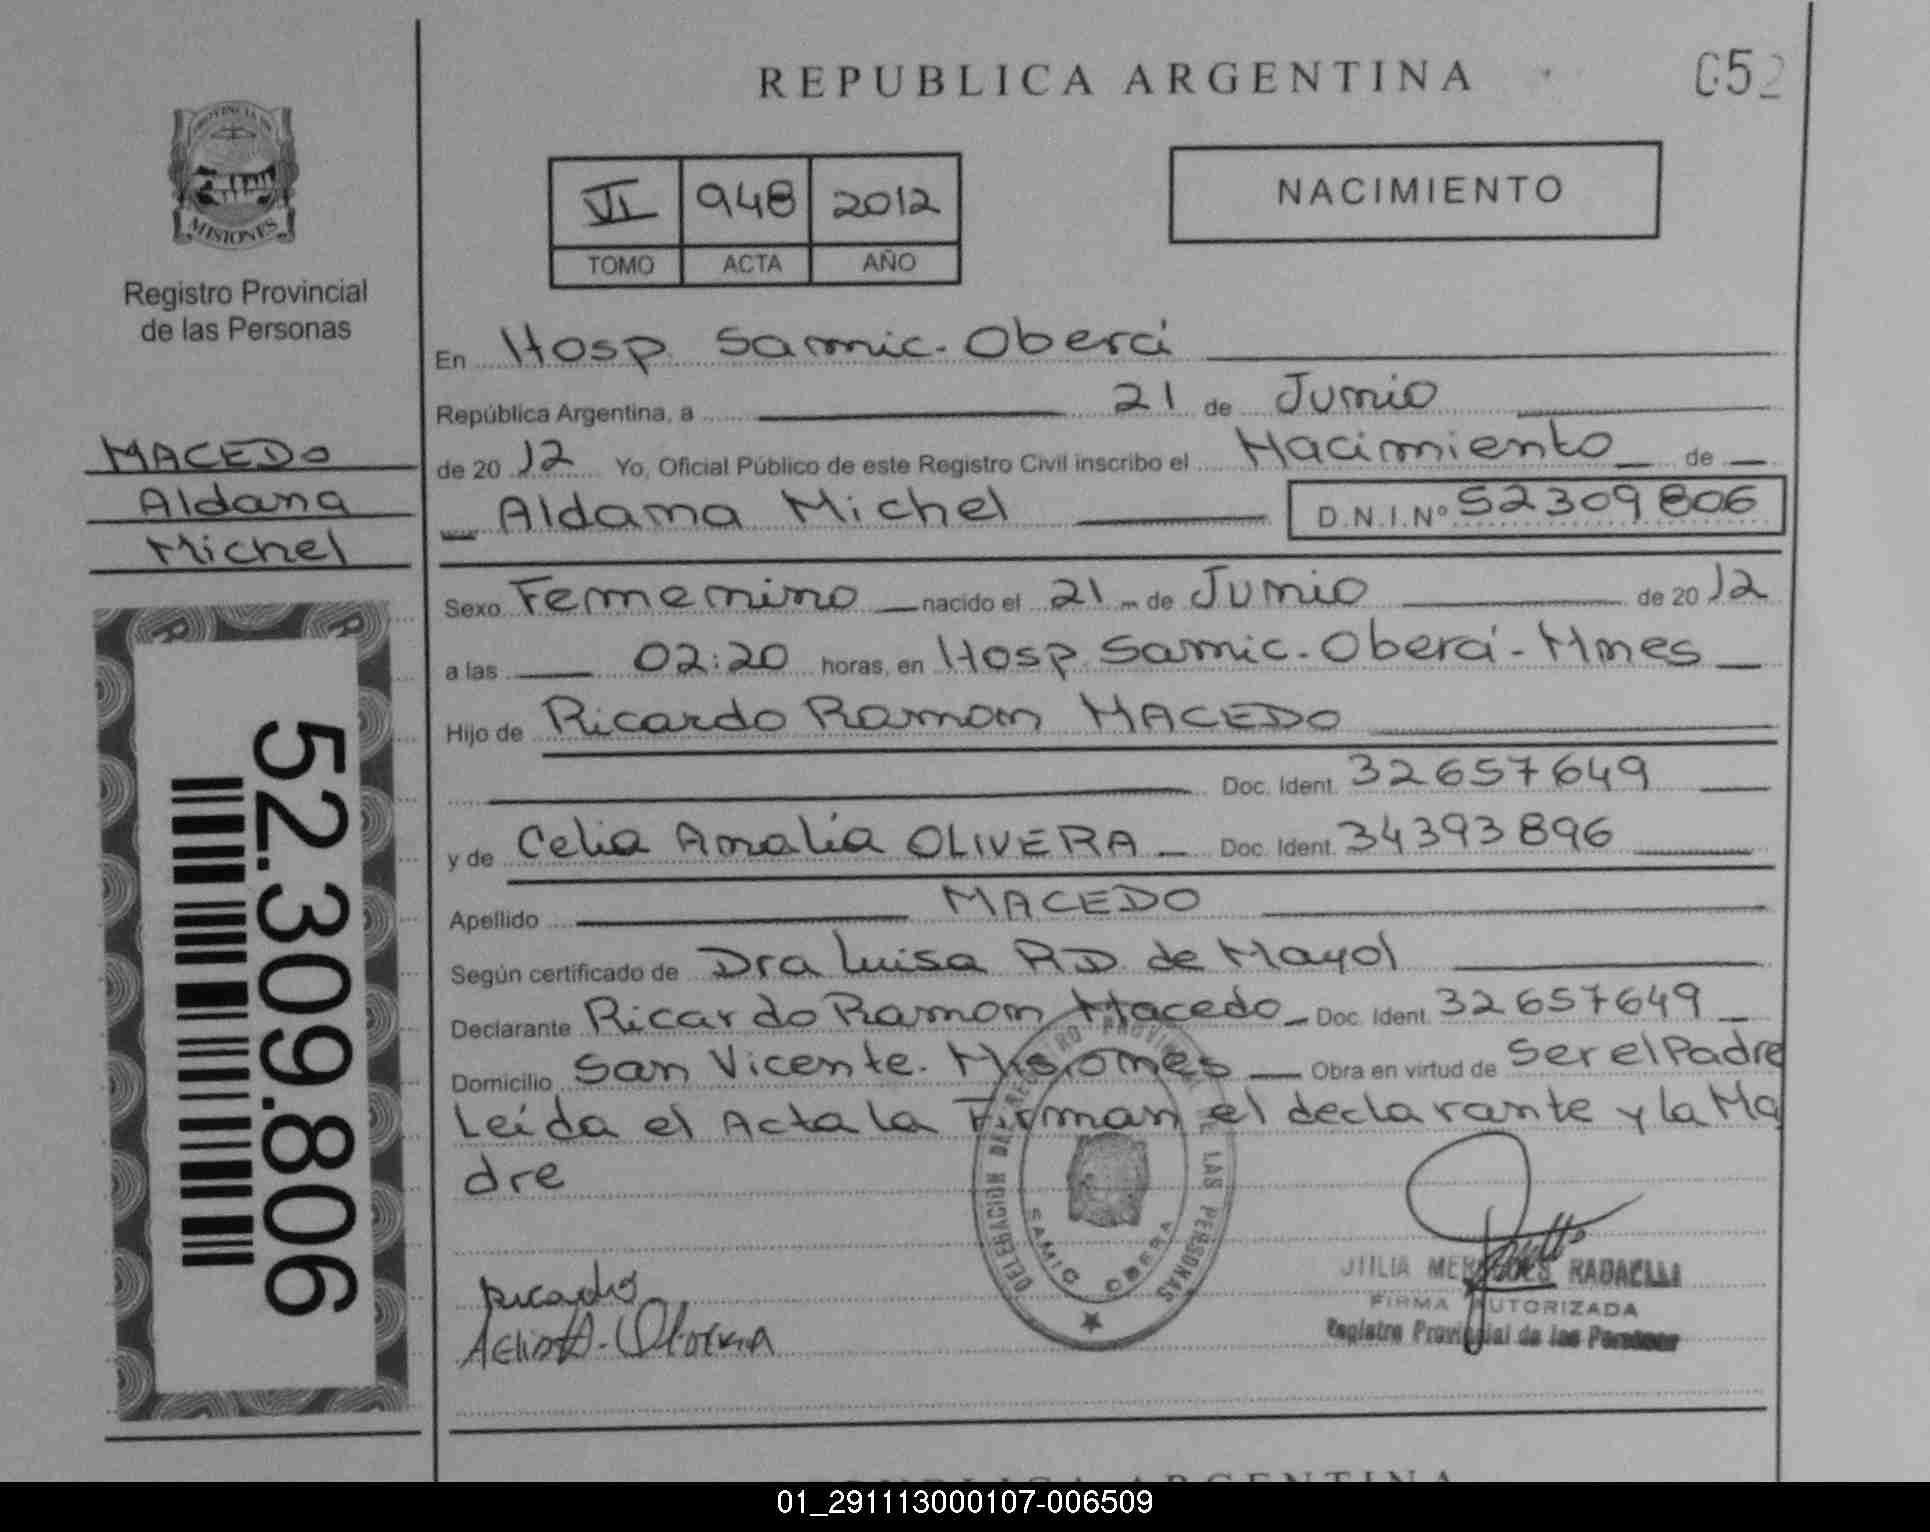 REPUBLICA ARGENTINA
052
PROVINCIA DE
MISIONES
Registro Provincial
de las Personas
VI 948 2012
TOMO ACTA AÑO
NACIMIENTO
MACEDO
Aldana
Michel
52.309.806
En Hosp. Samic. Oberá
República Argentina, a 21 de Junio
de 2012 Yo, Oficial Público de este Registro Civil inscribo el Nacimiento de
Aldana Michel D.N.I.Nº 52309806
Sexo Femenino nacido el 21 de Junio de 2012
a las 02:20 horas, en Hosp. Samic. Oberá - Mnes
Hijo de Ricardo Ramon MACEDO
Doc. Ident. 32657649
y de Celia Analía OLIVERA Doc. Ident. 34393896
Apellido MACEDO
Según certificado de Dra Luisa R.D. de Mayol
Declarante Ricardo Ramon Macedo Doc. Ident. 32657649
Domicilio San Vicente. Misiones Obra en virtud de Ser el Padre
Leída el Acta la Firman el declarante y la Ma
dre
DELEGACION DEL REGISTRO PROVINCIAL DE LAS PERSONAS
SAMIC OBERA
Ricardo
Olivera
JULIA MERCEDES RADAELLI
FIRMA AUTORIZADA
Registro Provincial de las Personas
REPUBLICA ARGENTINA
01_291113000107-006509